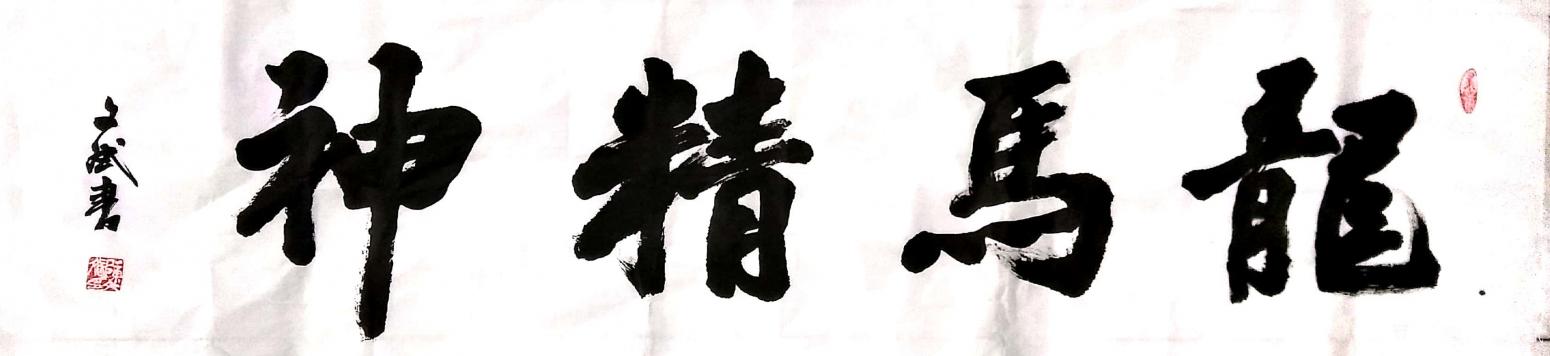 龍馬精神
文斌書